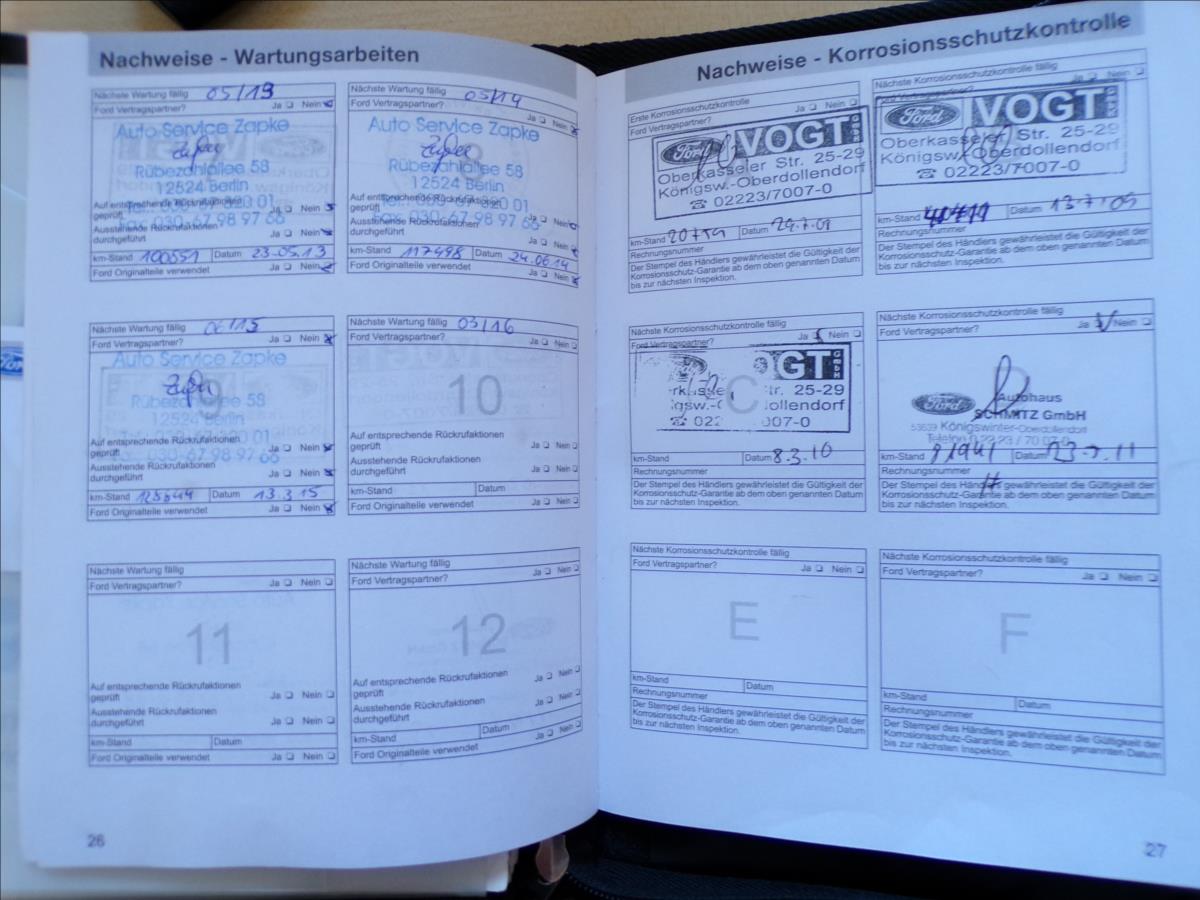 Nachweise - Wartungsarbeiten
Nächste Wartung fällig 05/13
Ford Vertragspartner? Ja Nein
Auto Service Zapke
Rübezahlallee 58
12524 Berlin
Auf entsprechende Rückrufaktionen
geprüft Ja Nein
Ausstehende Rückrufaktionen
durchgeführt Ja Nein
km-Stand 100551 Datum 23.05.13
Ford Originalteile verwendet Ja Nein
Nächste Wartung fällig 05/14
Ford Vertragspartner? Ja Nein
8
Auto Service Zapke
Rübezahlallee 58
12524 Berlin
Fax 030-67 98 97 66
Auf entsprechende Rückrufaktionen
geprüft Ja Nein
Ausstehende Rückrufaktionen
durchgeführt Ja Nein
km-Stand 117498 Datum 24.06.14
Ford Originalteile verwendet Ja Nein
Nächste Wartung fällig 06/15
Ford Vertragspartner? Ja Nein
9
Auto Service Zapke
Rübezahlallee 58
12524 Berlin
Auf entsprechende Rückrufaktionen
geprüft Ja Nein
Ausstehende Rückrufaktionen
durchgeführt Ja Nein
km-Stand Datum 13.3.15
Ford Originalteile verwendet Ja Nein
Nächste Wartung fällig 03/16
Ford Vertragspartner? Ja Nein
10
Auf entsprechende Rückrufaktionen
geprüft Ja Nein
Ausstehende Rückrufaktionen
durchgeführt Ja Nein
km-Stand Datum
Ford Originalteile verwendet Ja Nein
Nächste Wartung fällig
Ford Vertragspartner? Ja Nein
11
Auf entsprechende Rückrufaktionen
geprüft Ja Nein
Ausstehende Rückrufaktionen
durchgeführt Ja Nein
km-Stand Datum
Ford Originalteile verwendet Ja Nein
Nächste Wartung fällig
Ford Vertragspartner? Ja Nein
12
Auf entsprechende Rückrufaktionen
geprüft Ja Nein
Ausstehende Rückrufaktionen
durchgeführt Ja Nein
km-Stand Datum
Ford Originalteile verwendet Ja Nein
26
Nachweise - Korrosionsschutzkontrolle
Erste Korrosionsschutzkontrolle
Ford Vertragspartner? Ja Nein
Ford VOGT GmbH
Oberkasseler Str. 25-29
Königsw.-Oberdollendorf
☎ 02223/7007-0
km-Stand Datum
Rechnungsnummer
Der Stempel des Händlers gewährleistet die Gültigkeit der
Korrosionsschutz-Garantie ab dem oben genannten Datum
bis zur nächsten Inspektion.
Nächste Korrosionsschutzkontrolle fällig
Ford Vertragspartner? Ja Nein
Ford VOGT GmbH
Oberkasseler Str. 25-29
Königsw.-Oberdollendorf
☎ 02223/7007-0
km-Stand Datum 13.7.09
Rechnungsnummer
Der Stempel des Händlers gewährleistet die Gültigkeit der
Korrosionsschutz-Garantie ab dem oben genannten Datum
bis zur nächsten Inspektion.
Nächste Korrosionsschutzkontrolle fällig
Ford Vertragspartner? Ja Nein
C
OGT GmbH
rkasse tr. 25-29
igsw.- ollendorf
☎ 022 007-0
km-Stand Datum 8.3.10
Rechnungsnummer
Der Stempel des Händlers gewährleistet die Gültigkeit der
Korrosionsschutz-Garantie ab dem oben genannten Datum
bis zur nächsten Inspektion.
Nächste Korrosionsschutzkontrolle fällig
Ford Vertragspartner? Ja Nein
D
Ford Autohaus
SCHMITZ GmbH
53639 Königswinter-Oberdollendorf
Telefon 0 22 23 / 70 07-0
km-Stand 81941 Datum
Rechnungsnummer
Der Stempel des Händlers gewährleistet die Gültigkeit der
Korrosionsschutz-Garantie ab dem oben genannten Datum
bis zur nächsten Inspektion.
Nächste Korrosionsschutzkontrolle fällig
Ford Vertragspartner? Ja Nein
E
km-Stand Datum
Rechnungsnummer
Der Stempel des Händlers gewährleistet die Gültigkeit der
Korrosionsschutz-Garantie ab dem oben genannten Datum
bis zur nächsten Inspektion.
Nächste Korrosionsschutzkontrolle fällig
Ford Vertragspartner? Ja Nein
F
km-Stand Datum
Rechnungsnummer
Der Stempel des Händlers gewährleistet die Gültigkeit der
Korrosionsschutz-Garantie ab dem oben genannten Datum
bis zur nächsten Inspektion.
27